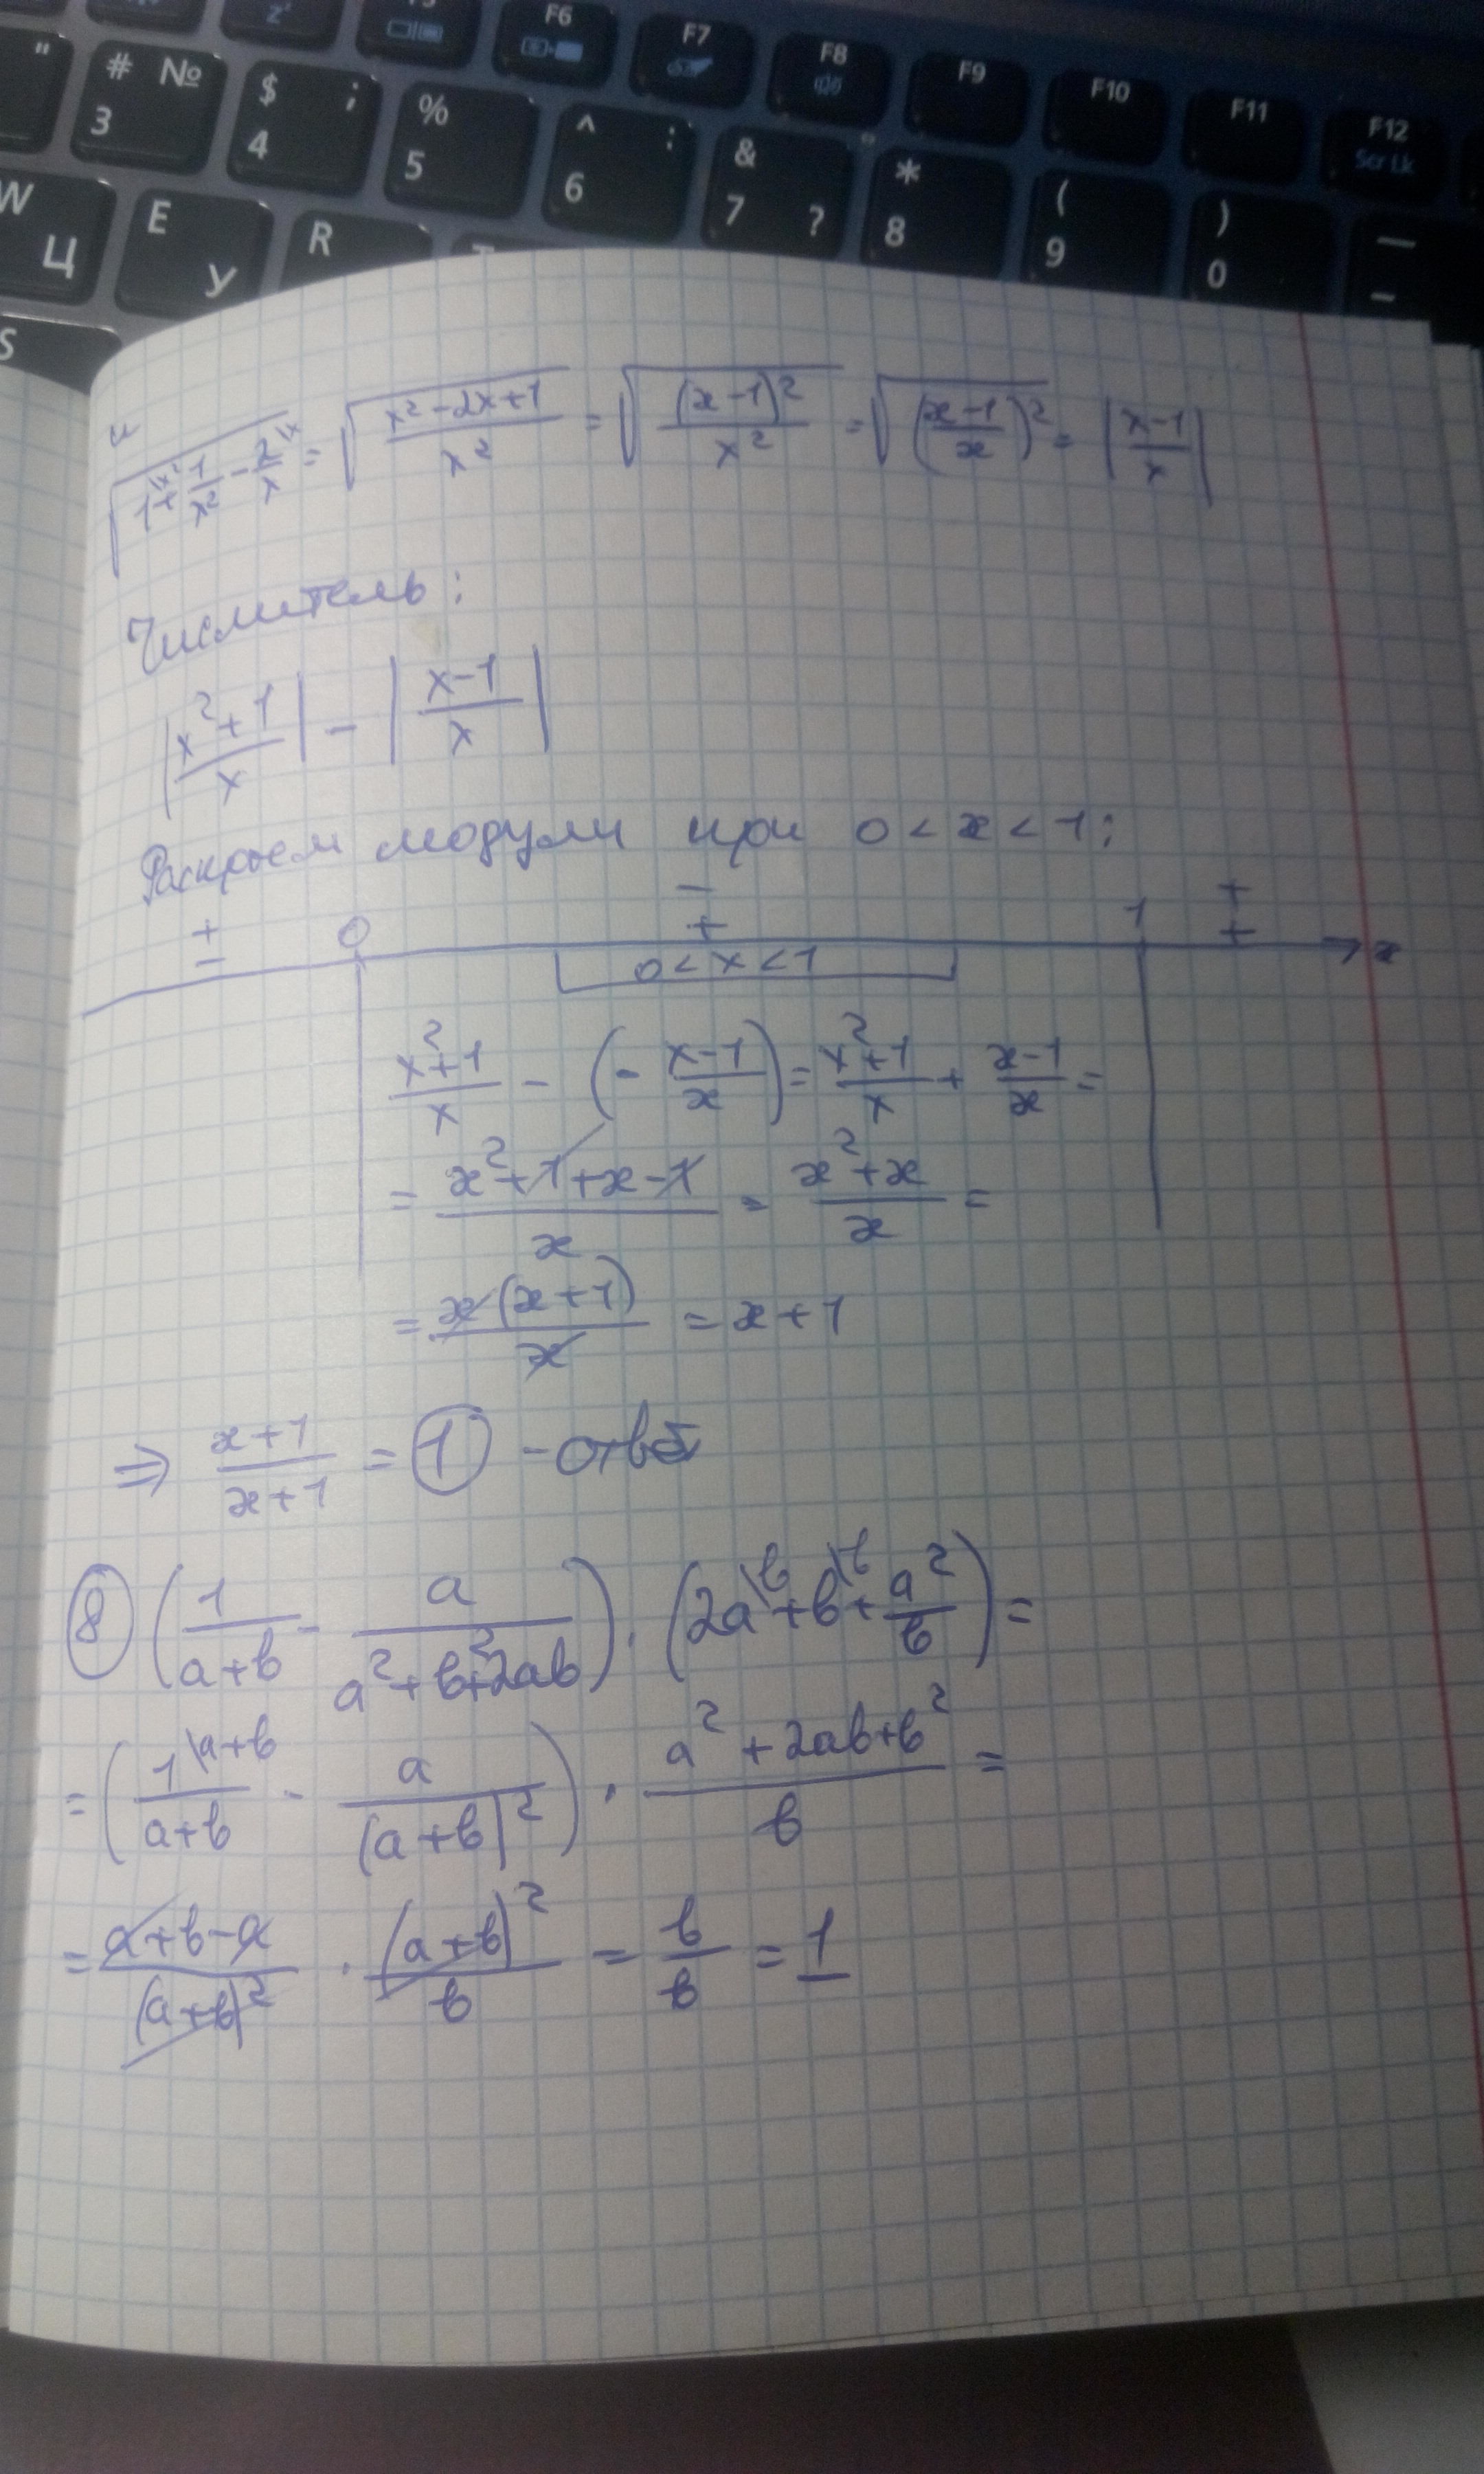 F6 F7 F8 F9 F10 F11 F12
Scr Lk
" # № 3 $ ; 4 % 5 ^ : 6 & 7 ? * 8 ( 9 ) 0 — –
W Ц E У R
S
и
√(1\x² + 1/x² − 2\x/x) = √((x²−2x+1)/x²) = √((x−1)²/x²) = √(((x−1)/x)²) = |(x−1)/x|
Числитель:
|(x²+1)/x| − |(x−1)/x|
Раскроем модули при 0 < x < 1:
− +
+ 0 + 1 + x
− 0 < x < 1
(x²+1)/x − (−(x−1)/x) = (x²+1)/x + (x−1)/x =
= (x²+1+x−1)/x = (x²+x)/x =
= x(x+1)/x = x+1
⇒ (x+1)/(x+1) = 1 − ответ
8 (1/(a+b) − a/(a²+b²+2ab)) · (2a\b + b\b + a²/b) =
= (1\a+b/(a+b) − a/(a+b)²) · (a²+2ab+b²)/b =
= (a+b−a)/(a+b)² · (a+b)²/b = b/b = 1